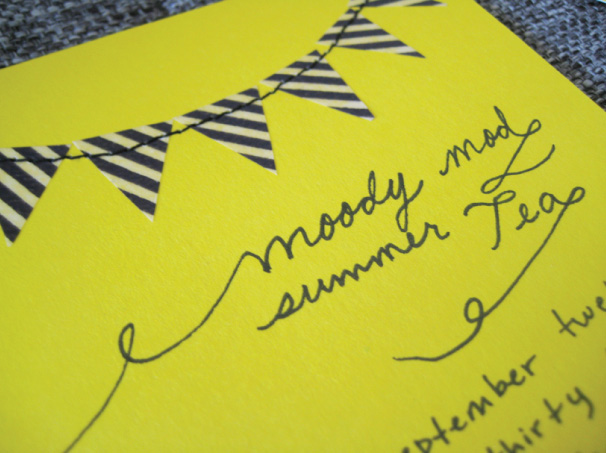 moody mod
summer Tea
september twe
thirty